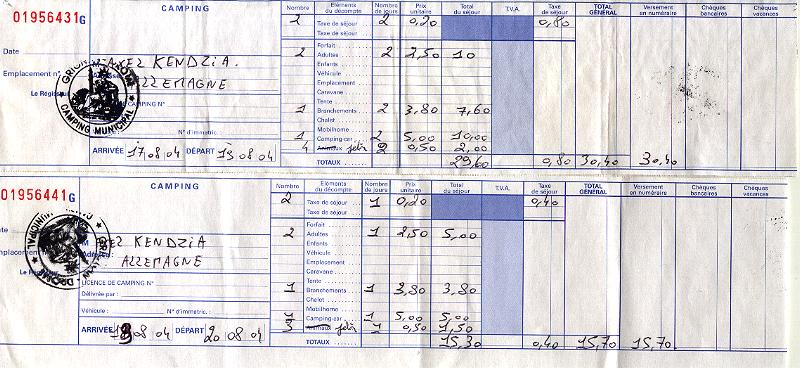 01956431G
CAMPING
Date
AXEL KENDZIA.
Emplacement n°
ALLEMAGNE
Le Régisseur
GRIGNAN DROME
CAMPING MUNICIPAL
N° d'immatric.
ARRIVÉE 17 08 04 DÉPART 19 08 04
Nombre Éléments du décompte Nombre de jours Prix unitaire Total du séjour T.V.A. Taxe de séjour TOTAL GÉNÉRAL Versement en numéraire Chèques bancaires Chèques vacances
2 Taxe de séjour 2 0,20 0,80
Taxe de séjour
Forfait
2 Adultes 2 2,50 10
Enfants
Véhicule
Emplacement
Caravane
Tente
1 Branchements 2 3,80 7,60
Chalet
Mobilhome
1 Camping-car 2 5,00 10,00
4 Animaux jeton 2 0,50 2,00
TOTAUX 29,60 0,80 30,40 30,40
01956441G
CAMPING
AXEL KENDZIA
Emplacement n°
Adresse :
ALLEMAGNE
Le Régisseur
LICENCE DE CAMPING N° :
Délivrée par :
Véhicule : N° d'immatric. :
ARRIVÉE 19 08 04 DÉPART 20 08 04
Nombre Éléments du décompte Nombre de jours Prix unitaire Total du séjour T.V.A. Taxe de séjour TOTAL GÉNÉRAL Versement en numéraire Chèques bancaires Chèques vacances
2 Taxe de séjour 1 0,20 0,40
Taxe de séjour
Forfait
2 Adultes 1 2,50 5,00
Enfants
Véhicule
Emplacement
Caravane
Tente
1 Branchements 1 3,80 3,80
Chalet
Mobilhome
1 Camping-car 1 5,00 5,00
3 Animaux jeton 1 0,50 1,50
TOTAUX 15,30 0,40 15,70 15,70